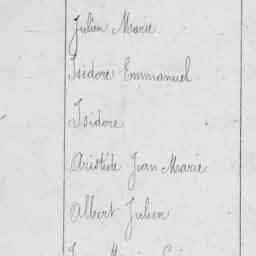 Julien Marie
Isidore Emmanuel
Isidore
Aristide Jean Marie
Albert Julien